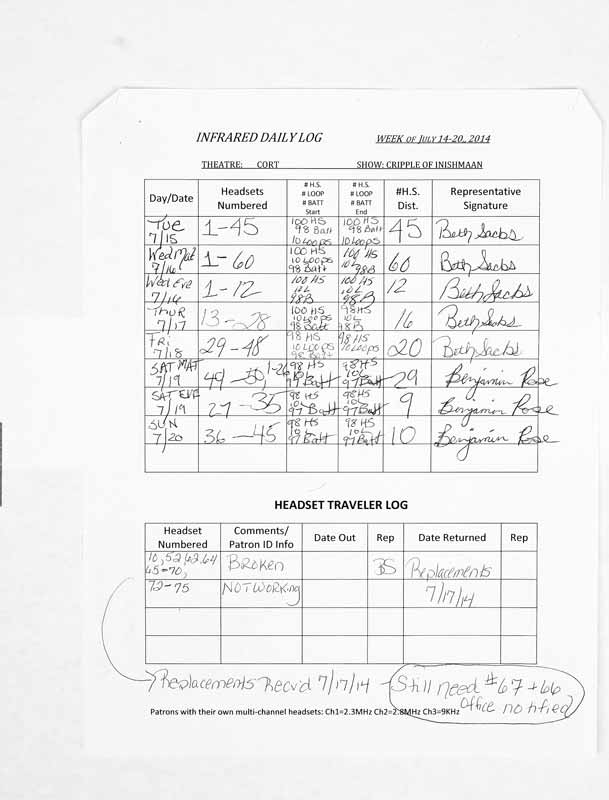 INFRARED DAILY LOG WEEK OF JULY 14-20, 2014
THEATRE: CORT SHOW: CRIPPLE OF INISHMAAN
Day/Date Headsets Numbered # H.S. # LOOP # BATT Start # H.S. # LOOP # BATT End #H.S. Dist. Representative Signature
Tue 7/15 1-45 100 HS 98 Batt 10 Loops 100 HS 98 Batt 10 Loops 45 Beth Sachs
Wed Mat 7/16 1-60 100 HS 10 Loops 98 Batt 100 HS 10 L 98B 60 Beth Sachs
Wed Eve 7/16 1-12 100 HS 10 L 98B 100 HS 10 L 98B 12 Beth Sachs
Thur 7/17 13-28 100 HS 10 Loops 98 Batt 98 HS 10 L 98 B 16 Beth Sachs
Fri 7/18 29-48 98 HS 10 Loops 98 Batt 98 HS 10 Loops 20 Beth Sachs
SAT MAT 7/19 49-50, 1-26 98 HS 10L 97 Batt 98 HS 10L 97 Batt 29 Benjamin Rose
SAT EVE 7/19 27-35 98 HS 10L 97 Batt 98 HS 10L 97 Batt 9 Benjamin Rose
SUN 7/20 36-45 98 HS 10L 97 Batt 98 HS 10L 97 Batt 10 Benjamin Rose
HEADSET TRAVELER LOG
Headset Numbered Comments/ Patron ID Info Date Out Rep Date Returned Rep
10, 52, 62, 64 65-70, BROKEN BS Replacements
72-75 NOT WORKING 7/17/14
Replacements Recvd 7/17/14 Still need #67 + 66
Office notified
Patrons with their own multi-channel headsets: Ch1=2.3MHz Ch2=2.8MHz Ch3=9KHz